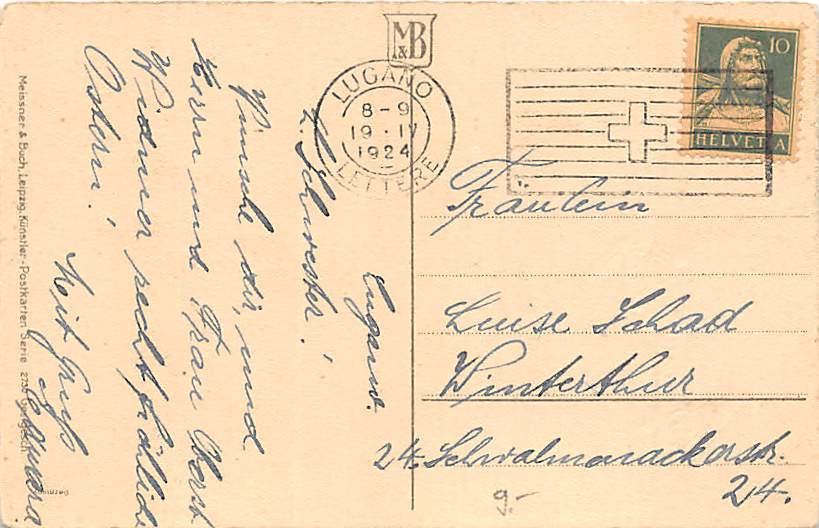 Lugano.
L. Schwester!
Wünsche dir, und
Herrn und Frau Oberst
Widmer recht fröhliche
Ostern!
Mit Gruß
M&B
LUGANO
8-9
19·IV
1924
LETTERE
10
HELVETIA
Fräulein
Luise Schad
Winterthur
24.
24.
Meissner & Buch, Leipzig, Künstler-Postkarten Serie 2736
9.-